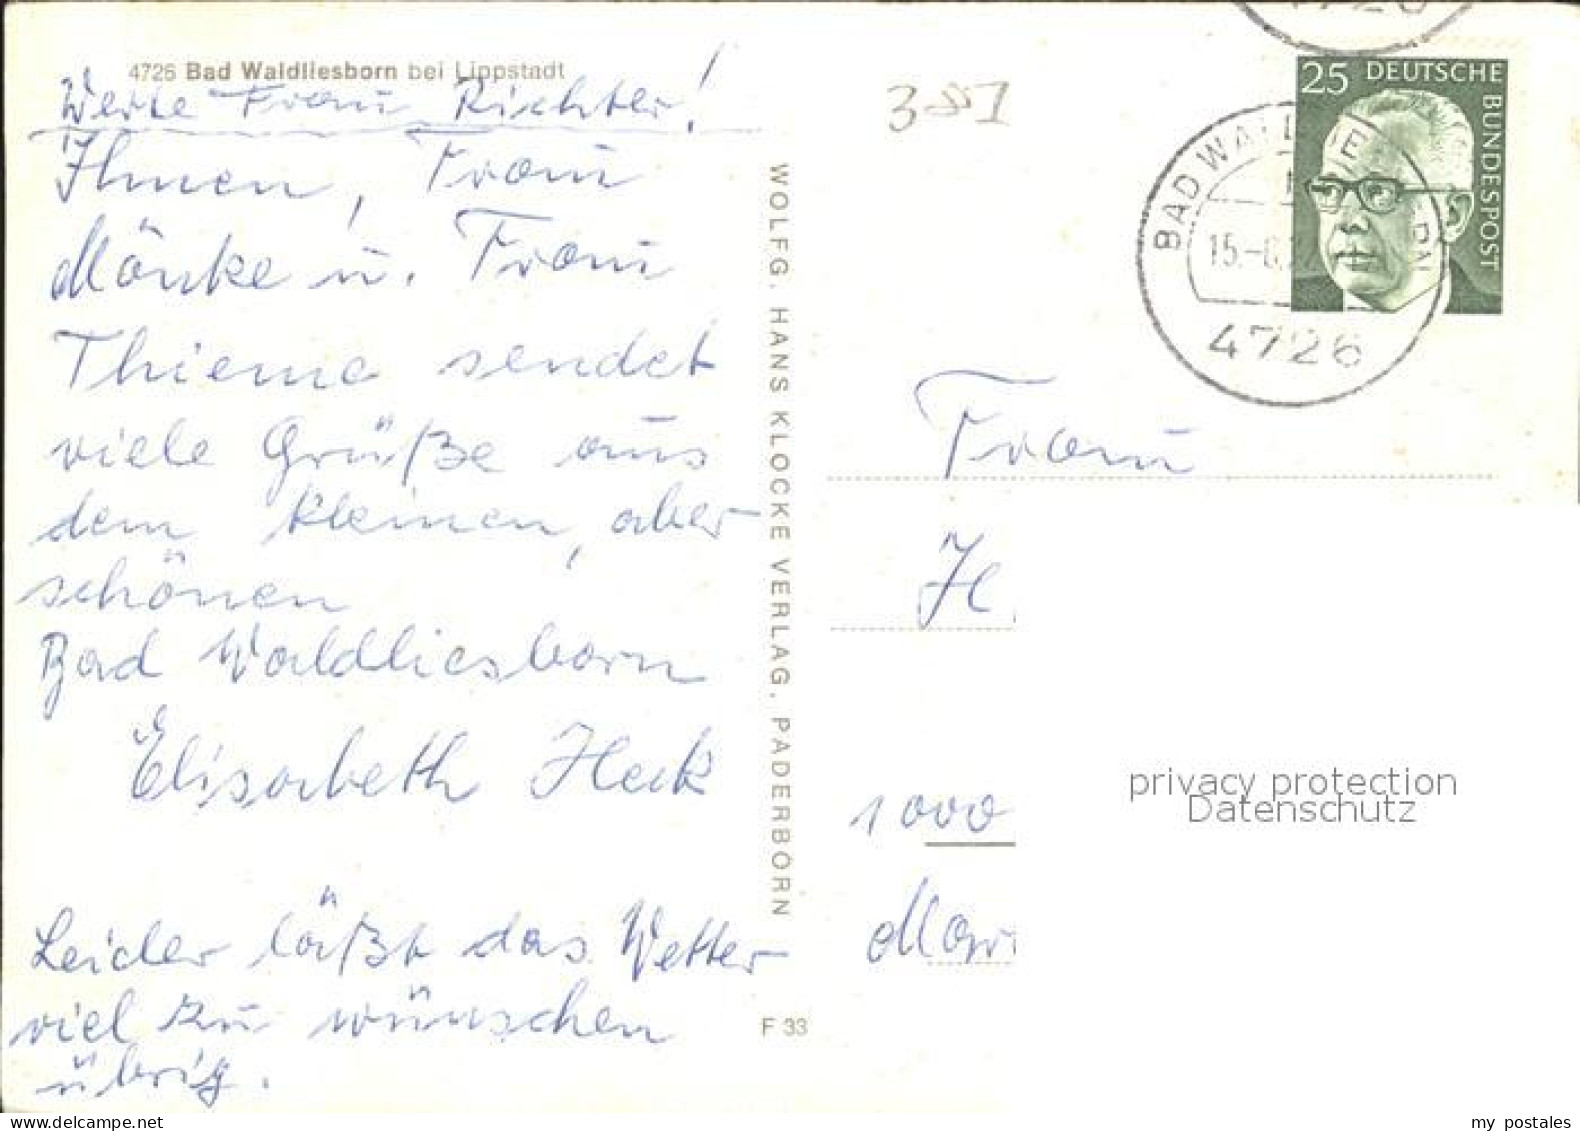 4726 Bad Waldliesborn bei Lippstadt
Werte Frau Richter!
Ihnen, Frau
Mönke u. Frau
Thieme sendet
viele Grüße aus
dem kleinen, aber
schönen
Bad Waldliesborn
Elisabeth Heck
Leider läßt das Wetter
viel zu wünschen
übrig.
WOLFG. HANS KLOCKE VERLAG, PADERBORN
F 33
381
25 DEUTSCHE
BUNDESPOST
BAD WALDLIESBORN
15.-8.
4726
4726
Frau
H
1000
Mari
privacy protection
Datenschutz
my postales